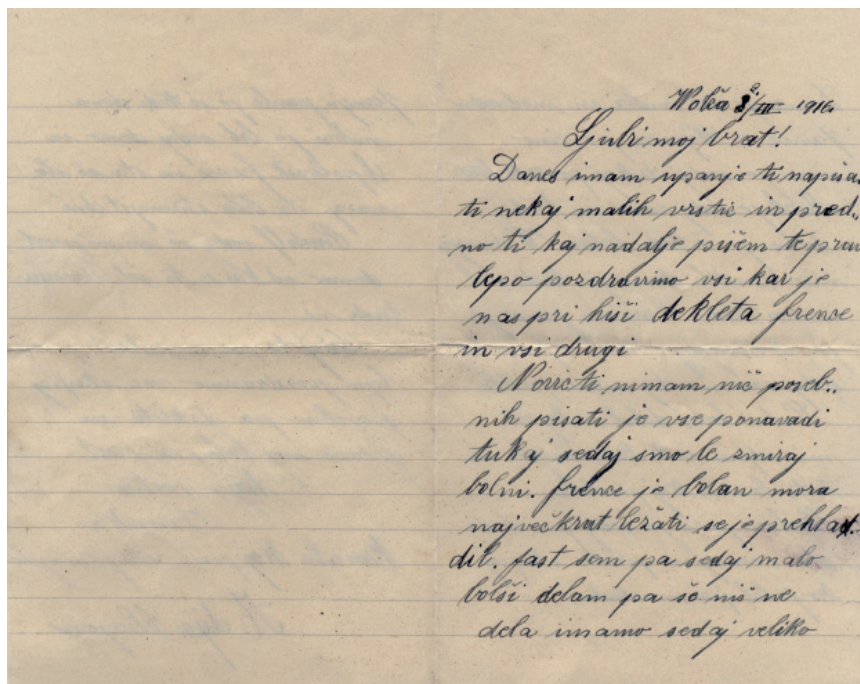 Wolča 8/III 1916
Ljubi moj brat!
Danes imam upanje ti napisa..
ti nekaj malih vrstic in pred..
no ti kaj nadalje pišem te prav
lepo pozdravimo vsi kar je
nas pri hiši dekleta frence
in vsi drugi
Novic ti nimam nič poseb..
nih pisati je vse ponavadi
tukaj sedaj smo le zmiraj
bolni. frence je bolan mora
največkrat ležati se je prehla..
dil. jast sem pa sedaj malo
bolši delam pa še nič ne
dela imamo sedaj veliko